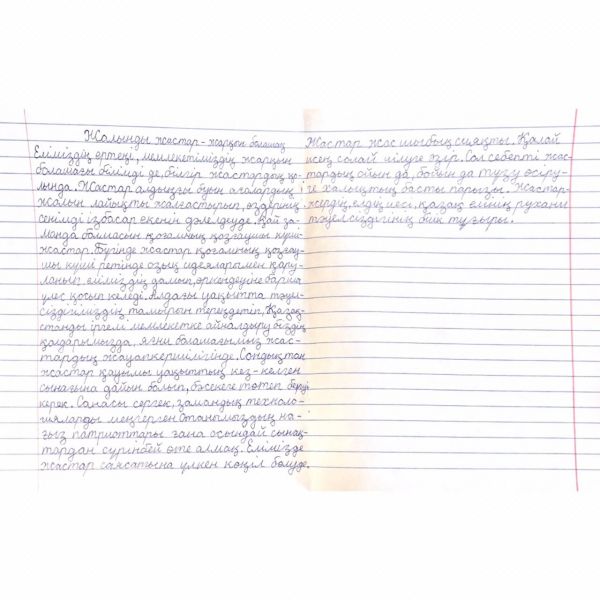 Жалынды жастар - жарқын болашақ
Еліміздің ертеңі, мемлекетіміздің жарқын
болашағы білімді де, білгір жастардың қо-
лында. Жастар алдыңғы буын ағалардың
жолын лайықты жалғастырып, өздерінің
сенімді ізбасар екенін дәлелдеуде. Қай за-
манда болмасын қоғамның қозғаушы күші-
жастар. Бүгінде жастар қоғамның қозғау-
шы күші ретінде озық идеяларымен қару-
ланып еліміздің дамып, өркендеуіне барынша
үлес қосып келеді. Алдағы уақытта тәуел-
сіздігіміздің тамырын тереңдетіп, Қазақ-
станды іргелі мемлекетке айналдыру біздің
қолдарымызда, яғни болашағымыз жас-
тардың жауапкершілігінде. Сондықтан
жастар қауымы уақыттың кез-келген
сынағына дайын болып, бәсекеге төтеп беруі
керек. Санасы сергек, замандық техноло-
гияларды меңгерген Отанымыздың на-
ғыз патриоттары ғана осындай сынақ-
тардан сүрінбей өте алмақ. Елімізде
жастар саясатына үлкен көңіл бөлуде.
Жастар жас шыбық сияқты. Қалай
исең солай иілуге әзір. Сол себепті жас-
тардың ойын да, бойын да түзу өсіру-
ге халықтың басты парызы. Жастар-
жердің, елдің иесі, қазақ елінің рухани
тәуелсіздігінің биік тұғыры.